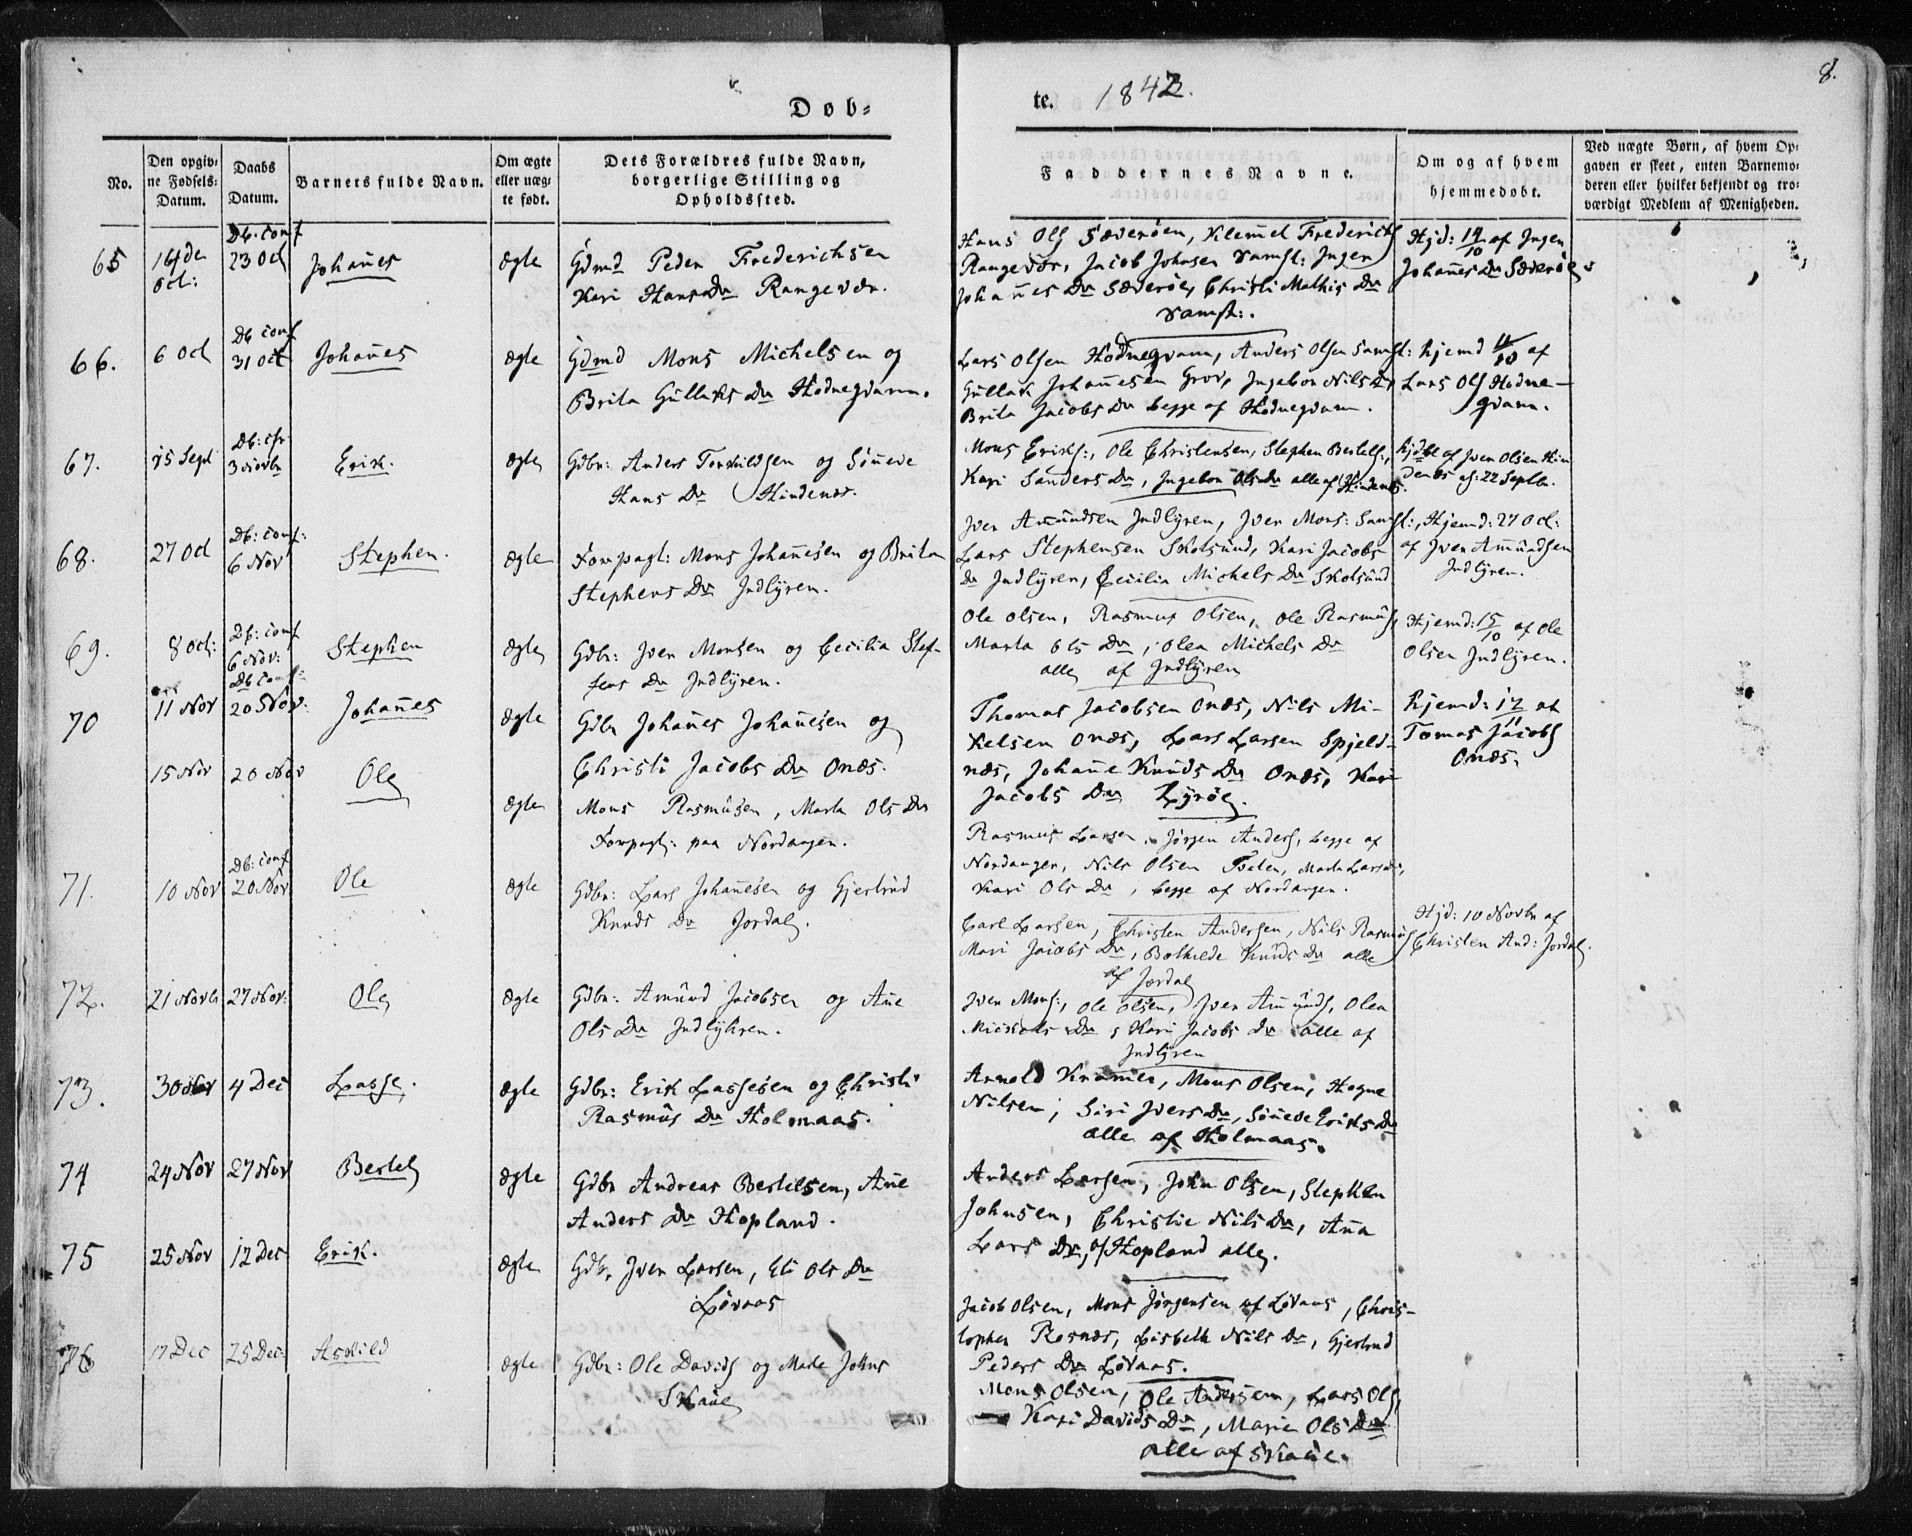 Døb=
te. 1842.
8.
No.
Den opgiv=
ne Fødsels=
Datum.
Daabs
Datum.
Barnets fulde Navn.
Om ægte
eller uæg=
te født.
Dets Forældres fulde Navn,
borgerlige Stilling og
Opholdssted.
Faddernes Navne.
Om og af hvem
hjemmedøbt.
Ved uægte Børn, af hvem Op=
gaven er skeet, enten Barnemo=
deren eller hvilket bekjendt og tro=
værdigt Medlem af Menigheden.
65
14de
Oct:
Db. conf
23 Oct
Johañes
Ægte
Gdmd Peder Frederichsen
Kari Hans Dr Rangevær.
Hans Ols Sæverøen, Klemmet Frederichs
Rangevær, Jacob Johnsen samst: Ingen
Johañes Dr Sæverøe, Christi Mathis Dr
samst:.
Hjd: 14/10 af Ingen
Johañes Dr Sæverøe
66.
6 Oct
Db conf
31 Oct
Johañes
Ægte
Gdmd Mons Michelsen og
Brita Gullaks Dr Hodnegvam.
Lars Olsen Hodnegvam, Anders Olsen samst:
Gullak Johañesen Grov, Ingebor Nils Dr
Brita Jacobs Dr begge af Hodnegvam.
hjemd 11/10 af
Lars Ols Hodne-
gvam.
67.
25 Sept
Db: cfr
3 Novbr
Erik.
Ægte
Gdbr: Anders Torkildsen og Söñeve
Hans Dr Hindenæs.
Mons Eriks:, Ole Christensen, Stephen Bertels:,
Kari Sanders Dr, Ingebor Ols Dr alle af Hindenes.
hjdbt af Iver Olsen Hin
denes d: 22 Septbr.
68.
27 Oct
Db: conf:
6 Nov
Stephen.
Ægte
Forpagt: Mons Johañesen og Brita
Stephens Dr Indlyren.
Iver Amundsen Indlyren, Iver Mons: samst:,
Lars Stephensen Skotsund, Kari Jacobs
Dr Indlyren, Cecilia Michels Dr Skotsund
Hjemd: 27 Oct:
af Iver Amundsen
Indlyren.
69.
8 Oct:
Db: conf
6 Nov:
Stephen
Ægte
Gdbr: Iver Monsen og Cecilia Stef-
fens Dr Indlyren.
Ole Olsen, Rasmus Olsen, Ole Rasmus,
Marta Ols Dr, Olea Michels Dr
alle af Indlyren
Hjemd: 15/10 af Ole
Olsen Indlyren.
70
11 Nov
Db conf:
20 Nov:
Johañes
Ægte
Gdbr Johañes Johañesen og
Christi Jacobs Dr Onæs.
Thomas Jacobsen Onæs, Nils Mi-
kelsen Onæs, Lars Larsen Spjeld-
næs, Johañe Knuds Dr Onæs, Kari
Jacobs Dr Lyrøe.
hjemd: 12/11 af
Tomas Jacobs
Onæs.
15 Nov
20 Nov
Ole
Ægte
Mons Rasmusen, Marta Ols Dr
Forpagt: paa Nordangen.
Rasmus Larsen, Jørgen Anders, begge af
Nordanger, Nils Olsen, Marta Lars Dr,
Kari Ols Dr, begge af Nordangen.
71.
10 Nov
Db: conf
20 Nov:
Ole
Ægte
Gdbr: Lars Johañesen og Gjertrud
Knuds Dr Jordal.
Carl Larsen, Christen Andersen, Nils Rasmus
Mari Jacobs Dr, Bothilde Knuds Dr alle
af Jordal
Hjd: 10 Novbr af
Christen And: Jordal.
72.
21 Novb
27 Nov:
Ole
Ægte
Gdbr: Amund Jacobsen og Añe
Ols Dr Indlyhren.
Iver Mons:, Ole Olsen, Iver Amunds, Olea
Michels Dr, Kari Jacobs Dr alle af
Indlyren
73.
30 Nov
4 Dec
Lasse.
Ægte
Gdbr: Erik Lassesen og Christi
Rasmus Dr Holmaas.
Arnold Kramer, Mons Olsen, Hogne
Nilsen, Siri Ivers Dr, Söñeve Eriks Dr
alle af Holmaas.
74
24 Nov
27 Nov
Bertel
Ægte
Gdbr Andreas Bertelsen, Añe
Anders Dr Hopland.
Anders Larsen, John Olsen, Stephen
Johnsen, Christie Nils Dr, Aña
Lars Dr, af Hopland alle.
75
25 Nov
12 Dec
Erik.
Ægte
Gdbr. Iver Larsen, Eli Ols Dr
Løvaas
Jacob Olsen, Mons Jørgensen af Løvaas, Chris-
topher Rosnæs, Lisbeth Nils Dr, Gjertrud
Peders Dr Løvaas.
76
17 Dec
25 Dec:
Askild
Ægte
Gdbr: Ole Davids og Marte Johns
Skaue
Mons Olsen, Ole Andersen, Lars Ols,
Kari Davids Dr, Marie Ols Dr
alle af Skaue.